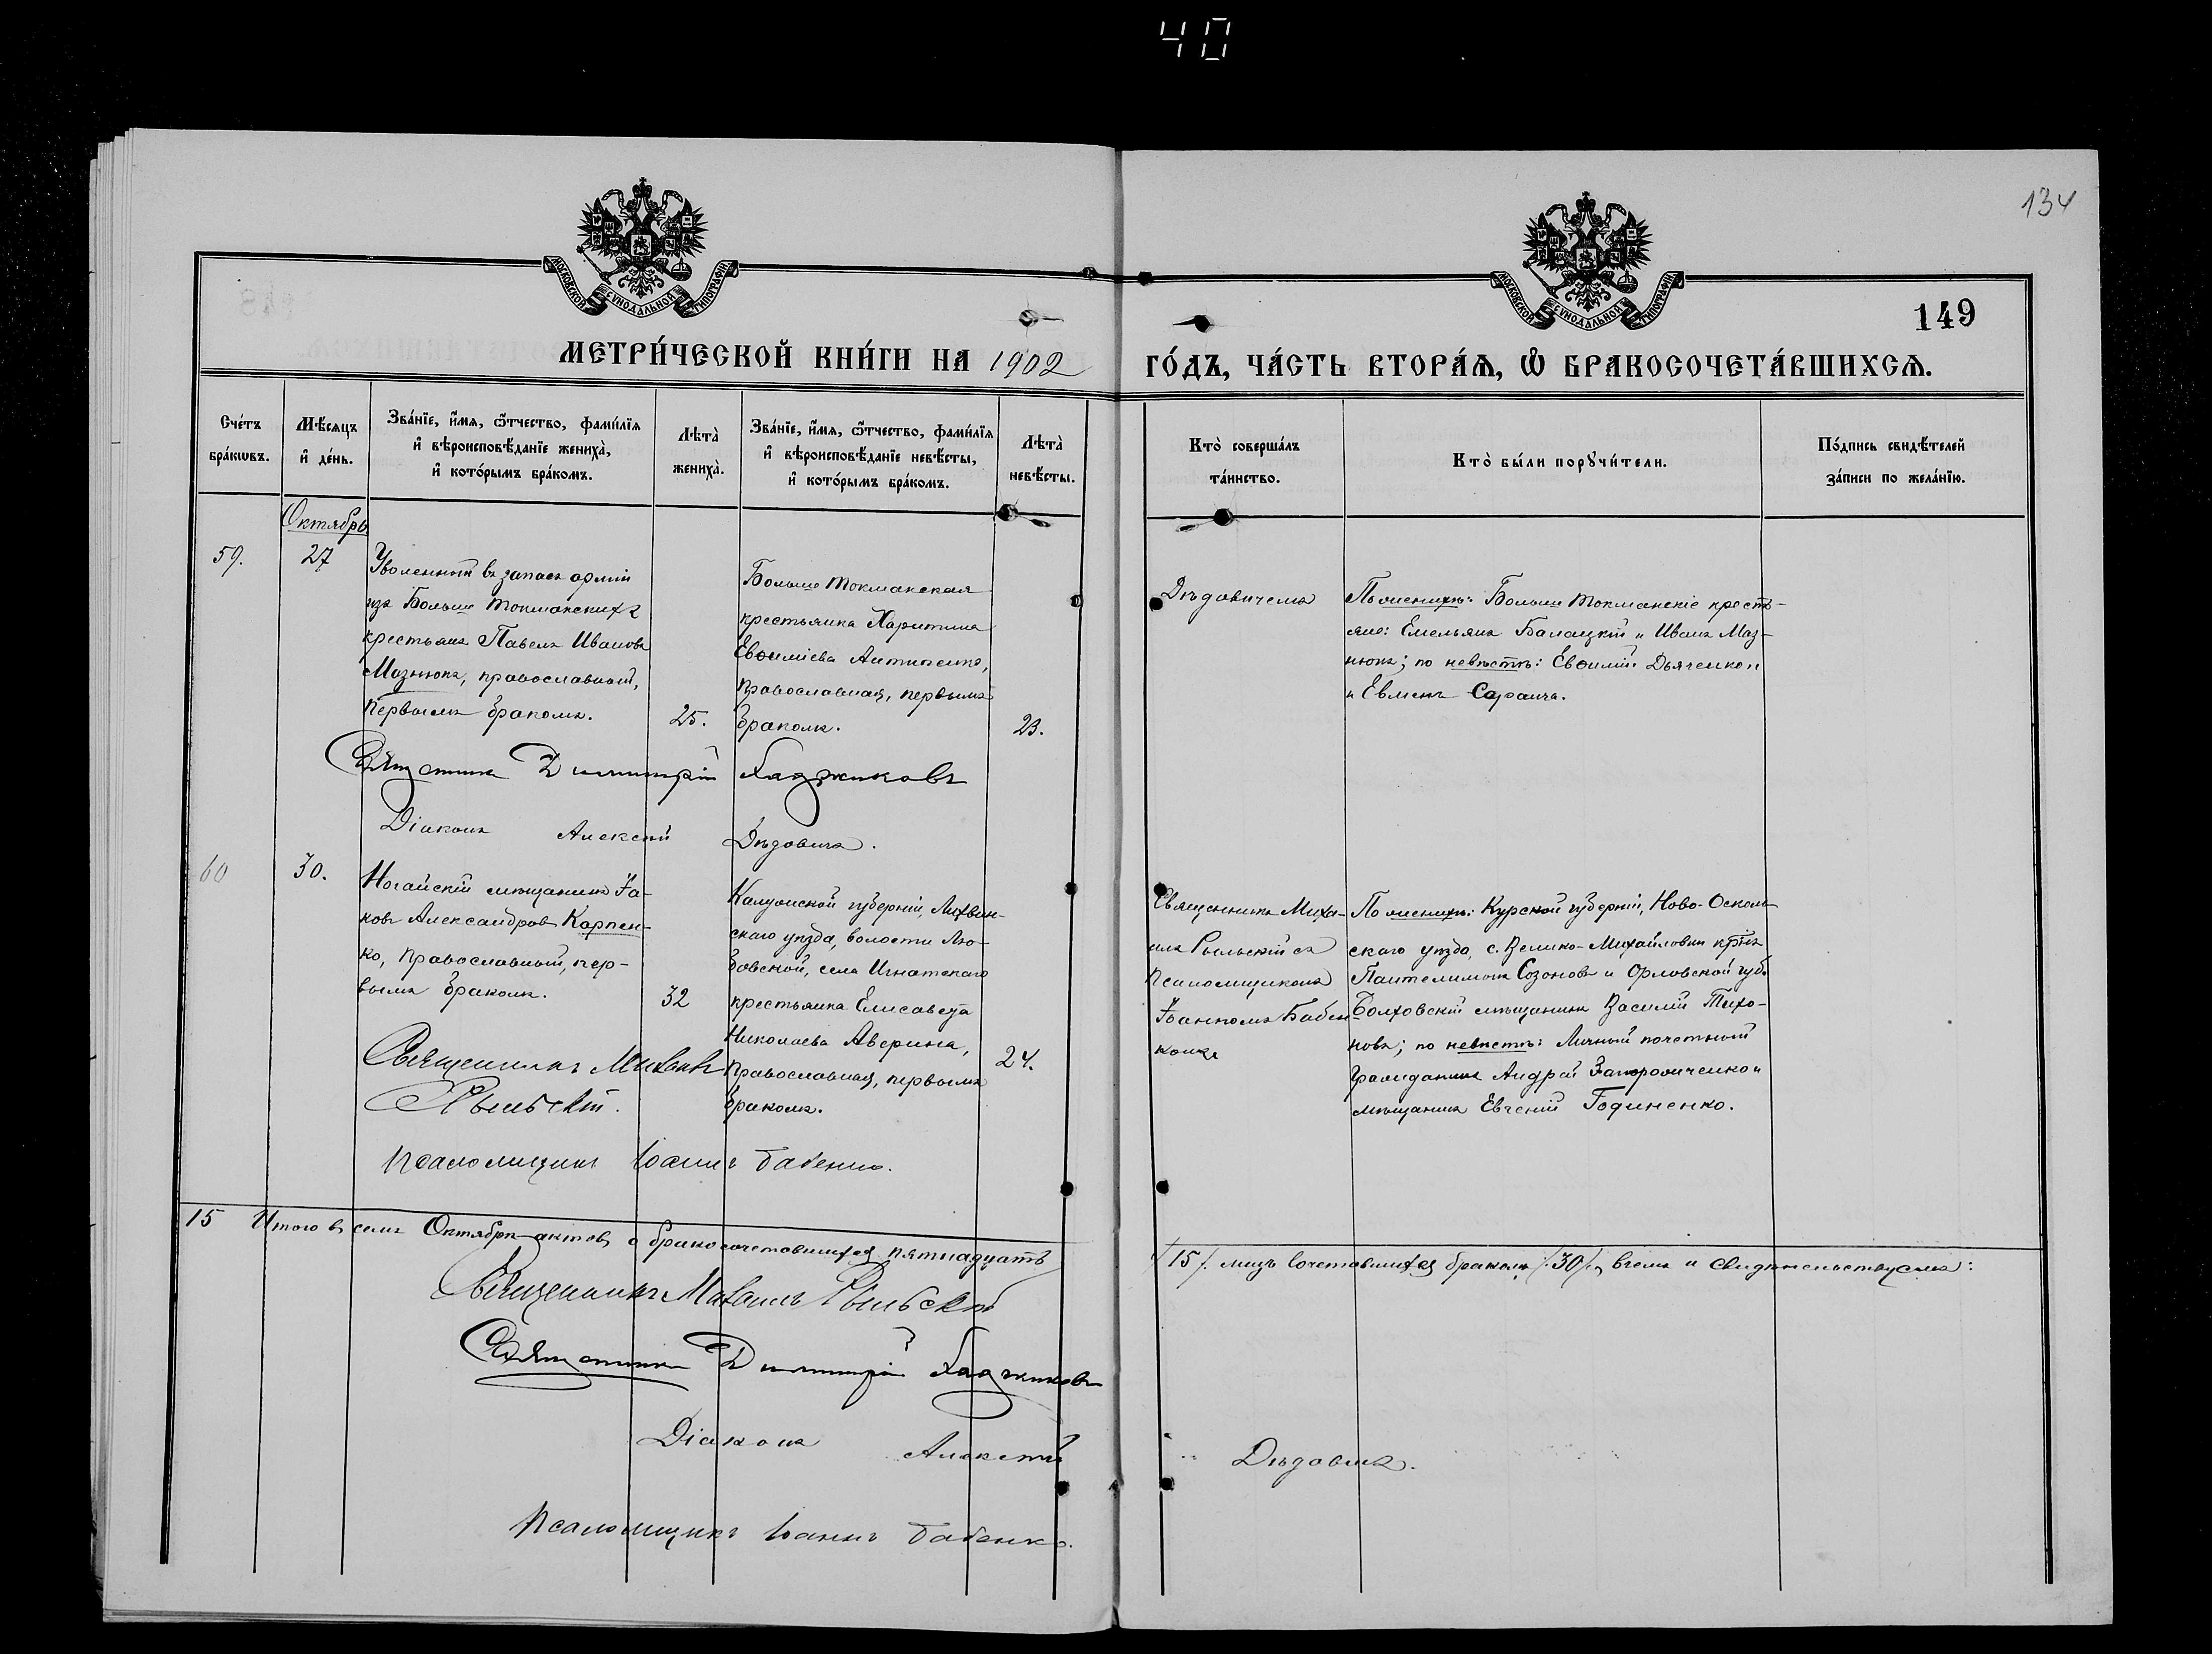 40
134
149
МОСКОВСКОЙ СУНОДАЛЬНОЙ ТИПОГРАФІИ
МОСКОВСКОЙ СУНОДАЛЬНОЙ ТИПОГРАФІИ
МЕТРИ́ЧЕСКОЙ КНИ́ГИ НА 1902 ГО́ДЪ, ЧА́СТЬ ВТОРА́Ѧ, Ѡ҆ БРАКОСОЧЕТА́ВШИХСѦ.
Сче́тъ
бра́кѡвъ.
Мѣ́сѧцъ
и҆ де́нь.
Зва́нїе, и҆́мѧ, ѻ҆́тчество, фами́лїѧ
и҆ вѣроисповѣ́данїе жениха̀,
и҆ кото́рымъ бра́комъ.
Лѣта̀
жениха̀.
Зва́нїе, и҆́мѧ, ѻ҆́тчество, фами́лїѧ
и҆ вѣроисповѣ́данїе невѣ́сты,
и҆ кото́рымъ бра́комъ.
Лѣта̀
невѣ́сты.
Кто̀ соверша́лъ
та́инство.
Кто̀ бы́ли порꙋчи́тели.
По́дпись свидѣ́телей
за́писи по жела́нїю.
Октябрь
59.
27
Уволенный въ запасъ арміи
изъ Больше Токмакскихъ
крестьянъ Павелъ Ивановъ
Мазнюкъ, православный,
первымъ бракомъ.
25.
Больше Токмакская
крестьянка Харитина
Евѳиміева Антипенко,
православная, первымъ
бракомъ.
23.
Дѣдовичемъ
По женихѣ: Больше Токмакскіе кресть-
яне: Емельянъ Балацкій и Иванъ Маз-
нюкъ; по невѣстѣ: Евѳимій Дьяченко и
и Евменъ Саранча.
Священникъ Димитрій Хаджиновъ
Діаконъ Алексѣй Дѣдовичъ.
60
30.
Ногайскій мѣщанинъ Іа-
ковъ Александровъ Карпен-
ко, православный, пер-
вымъ бракомъ.
32
Калужской губерніи, Лихвин-
скаго уѣзда, волости
села Игнатскаго
крестьянка Елисавета
Николаева Аверина,
православная, первымъ
бракомъ.
24.
Священникъ Миха-
илъ Рыльскій съ
псаломщикомъ
Іоанномъ Бабен
комъ
По женихѣ: Курской губерніи, Ново-Осколь-
скаго уѣзда, с. Велико-Михайловки кр-нъ
Пантелимонъ Созоновъ и Орловской губ.
Болховскій мѣщанинъ Василій Тихо-
новъ; по невѣстѣ: Личный почетный
гражданинъ Андрей и
мѣщанинъ Евгеній Годиненко.
Священникъ Михаилъ
Рыльскій.
Псаломщикъ Іоаннъ Бабенко.
15 Итого въ семъ Октябрѣ актовъ о бракосочетавшихся пятнадцать /15/. лицъ сочетавшихся бракомъ /30/, въ чемъ и свидѣтельствуемъ:
Священникъ Михаилъ Рыльскій
Священникъ Димитрій Хаджиновъ
Діаконъ Алексѣй Дѣдовичъ.
Псаломщикъ Іоаннъ Бабенко.